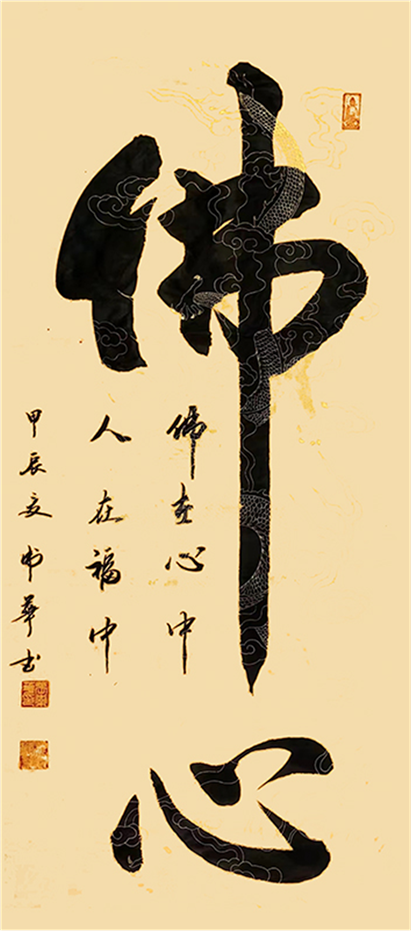 佛心
佛在心中
人在福中
甲辰夏 书华书